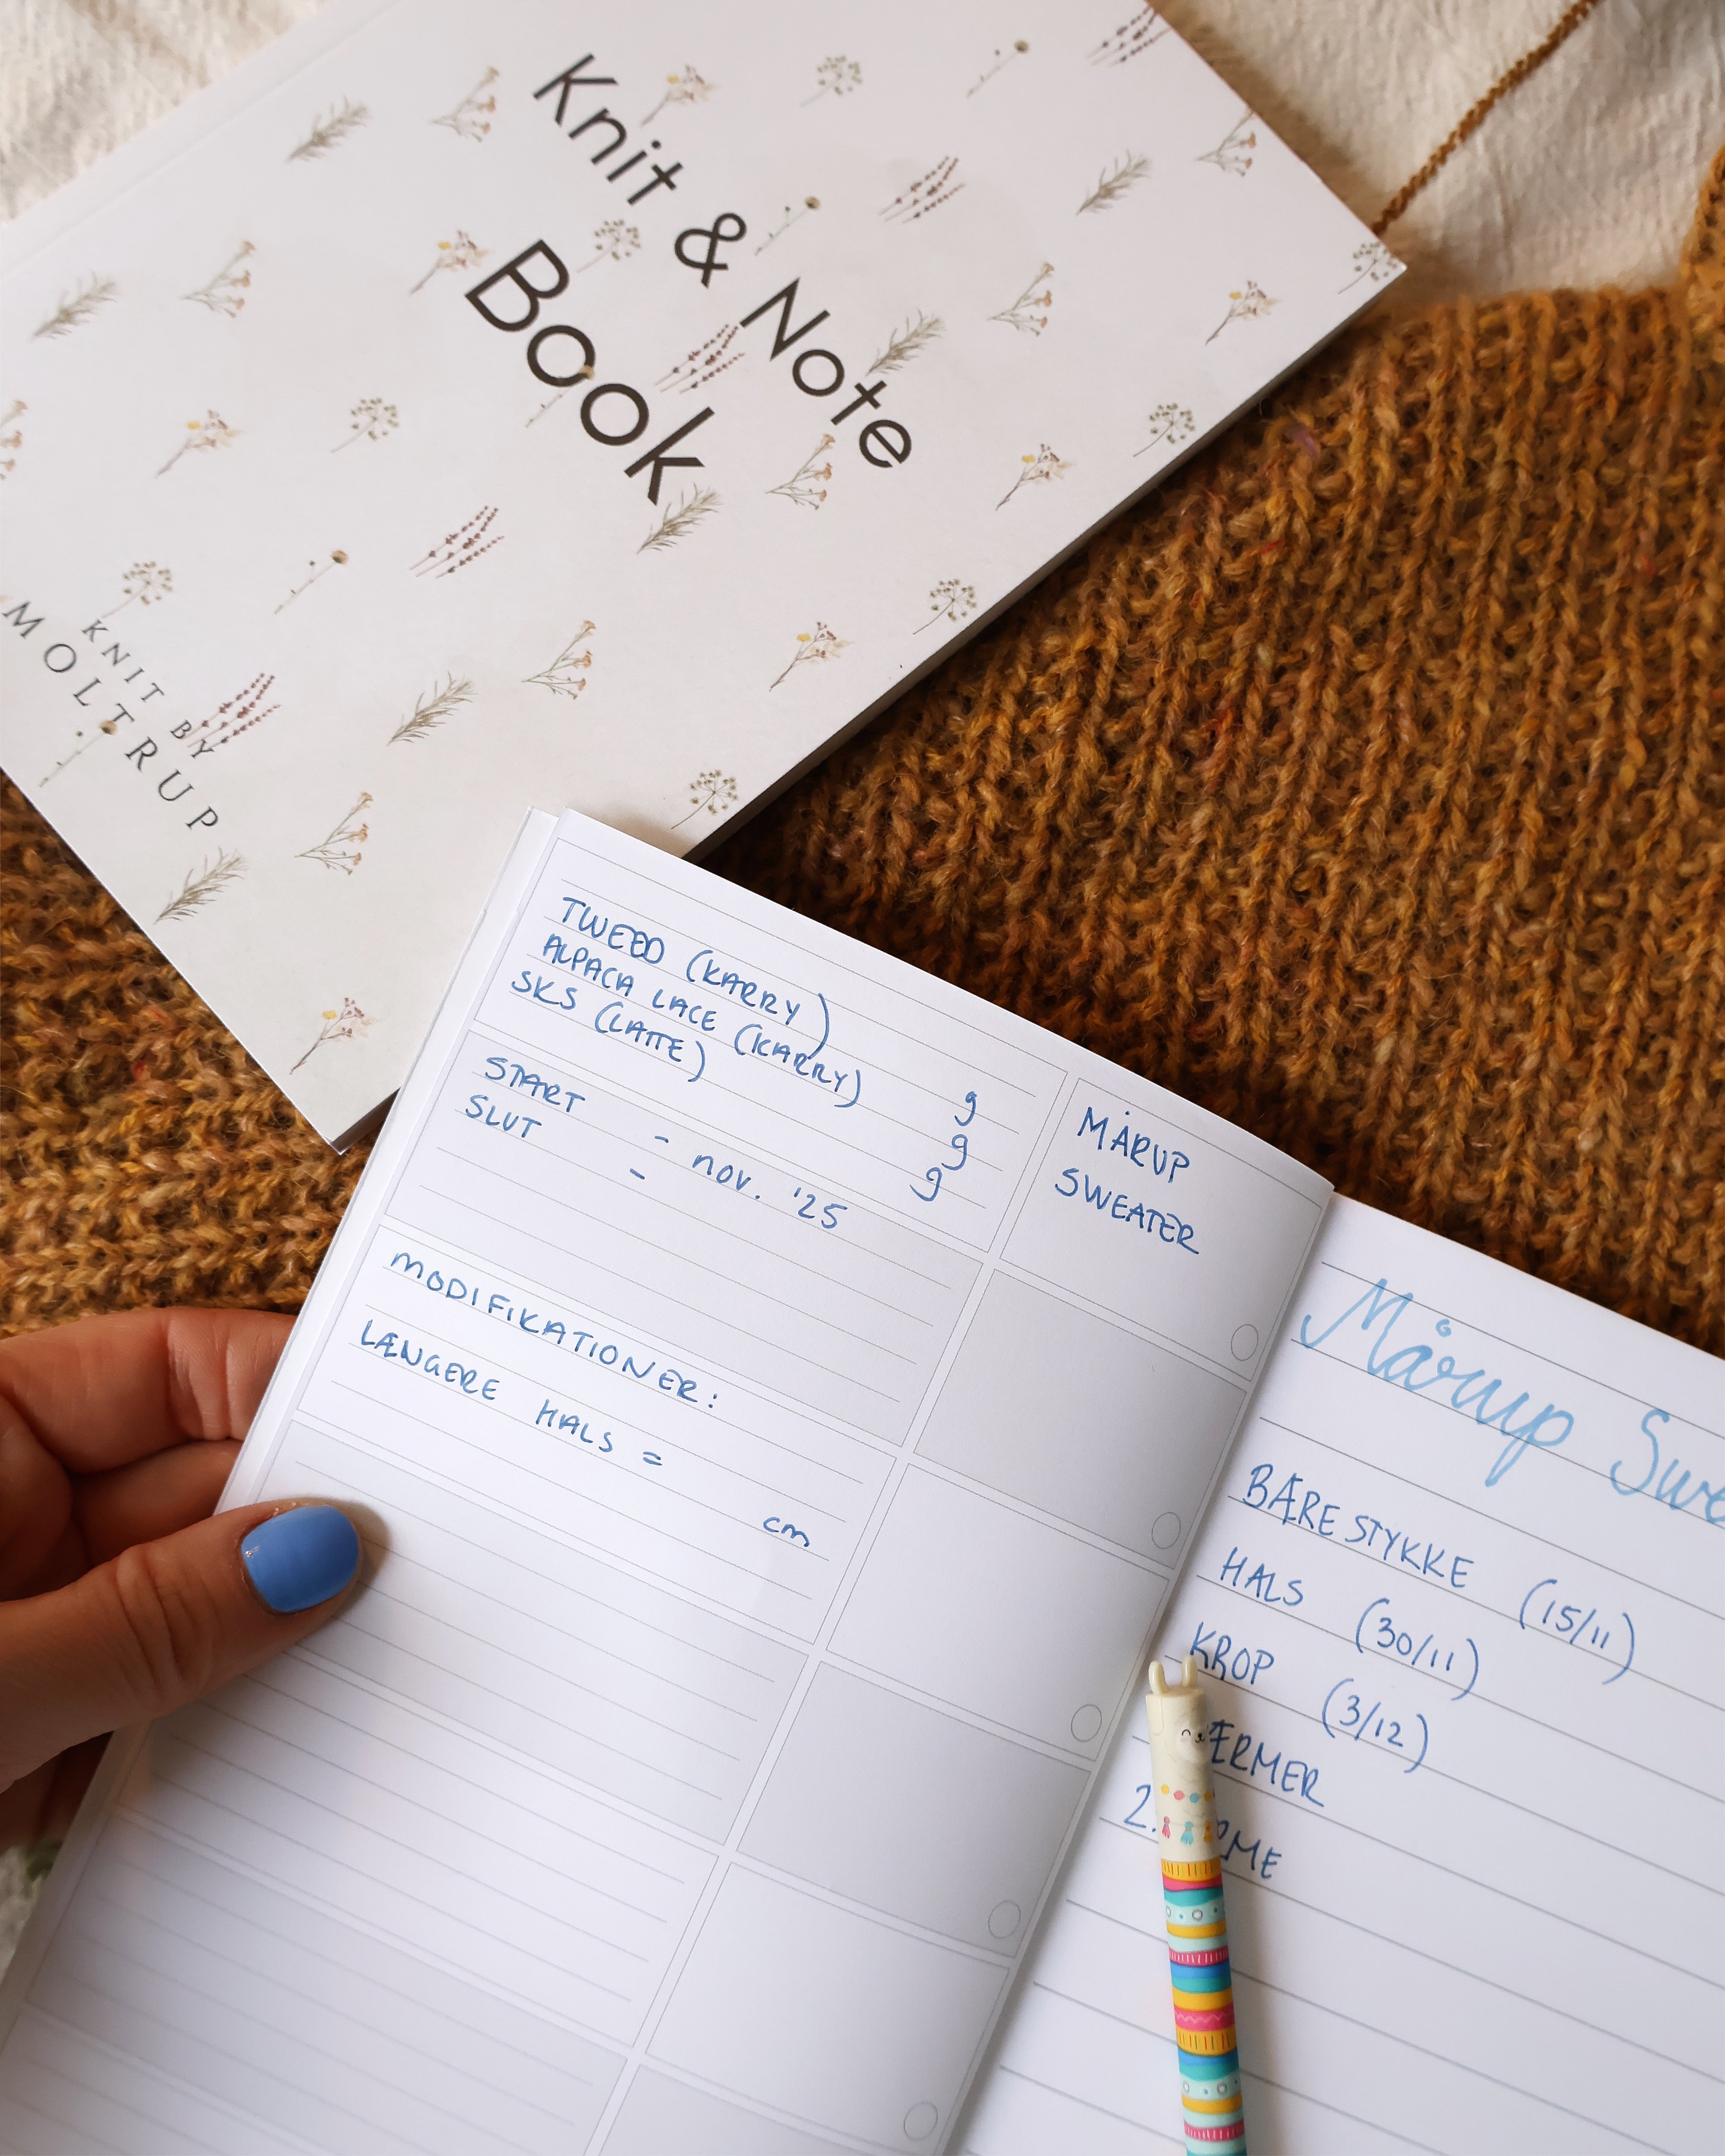 Knit & Note
Book
KNIT BY
MOLTRUP
TWEED (KARRY) g
ALPACA LACE (KARRY) g
SKS (LATTE) g
START - nov. '25
SLUT -
MODIFIKATIONER:
LÆNGERE HALS = cm
MÅRUP
SWEATER
Mårup Swe
BÆRESTYKKE (15/11)
HALS (30/11)
KROP (3/12)
ÆRMER
2.